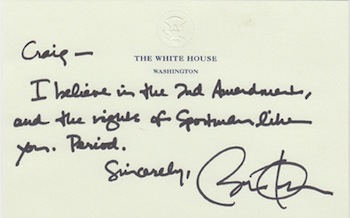 Craig—
THE WHITE HOUSE
WASHINGTON
I believe in the 2nd Amendment,
and the rights of Sportman like
you. Period.
Sincerely,